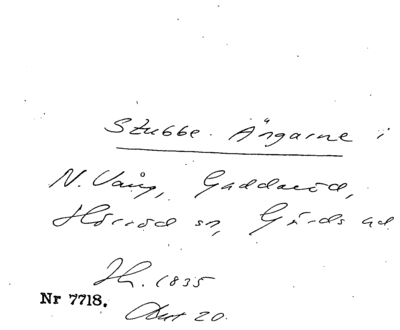 Stubbe Ängarne i
N. Vång, Gaddaröd,
Hörröd sn, Gärds hd
Jh. 1835
Nr 7718.
Akt 20.